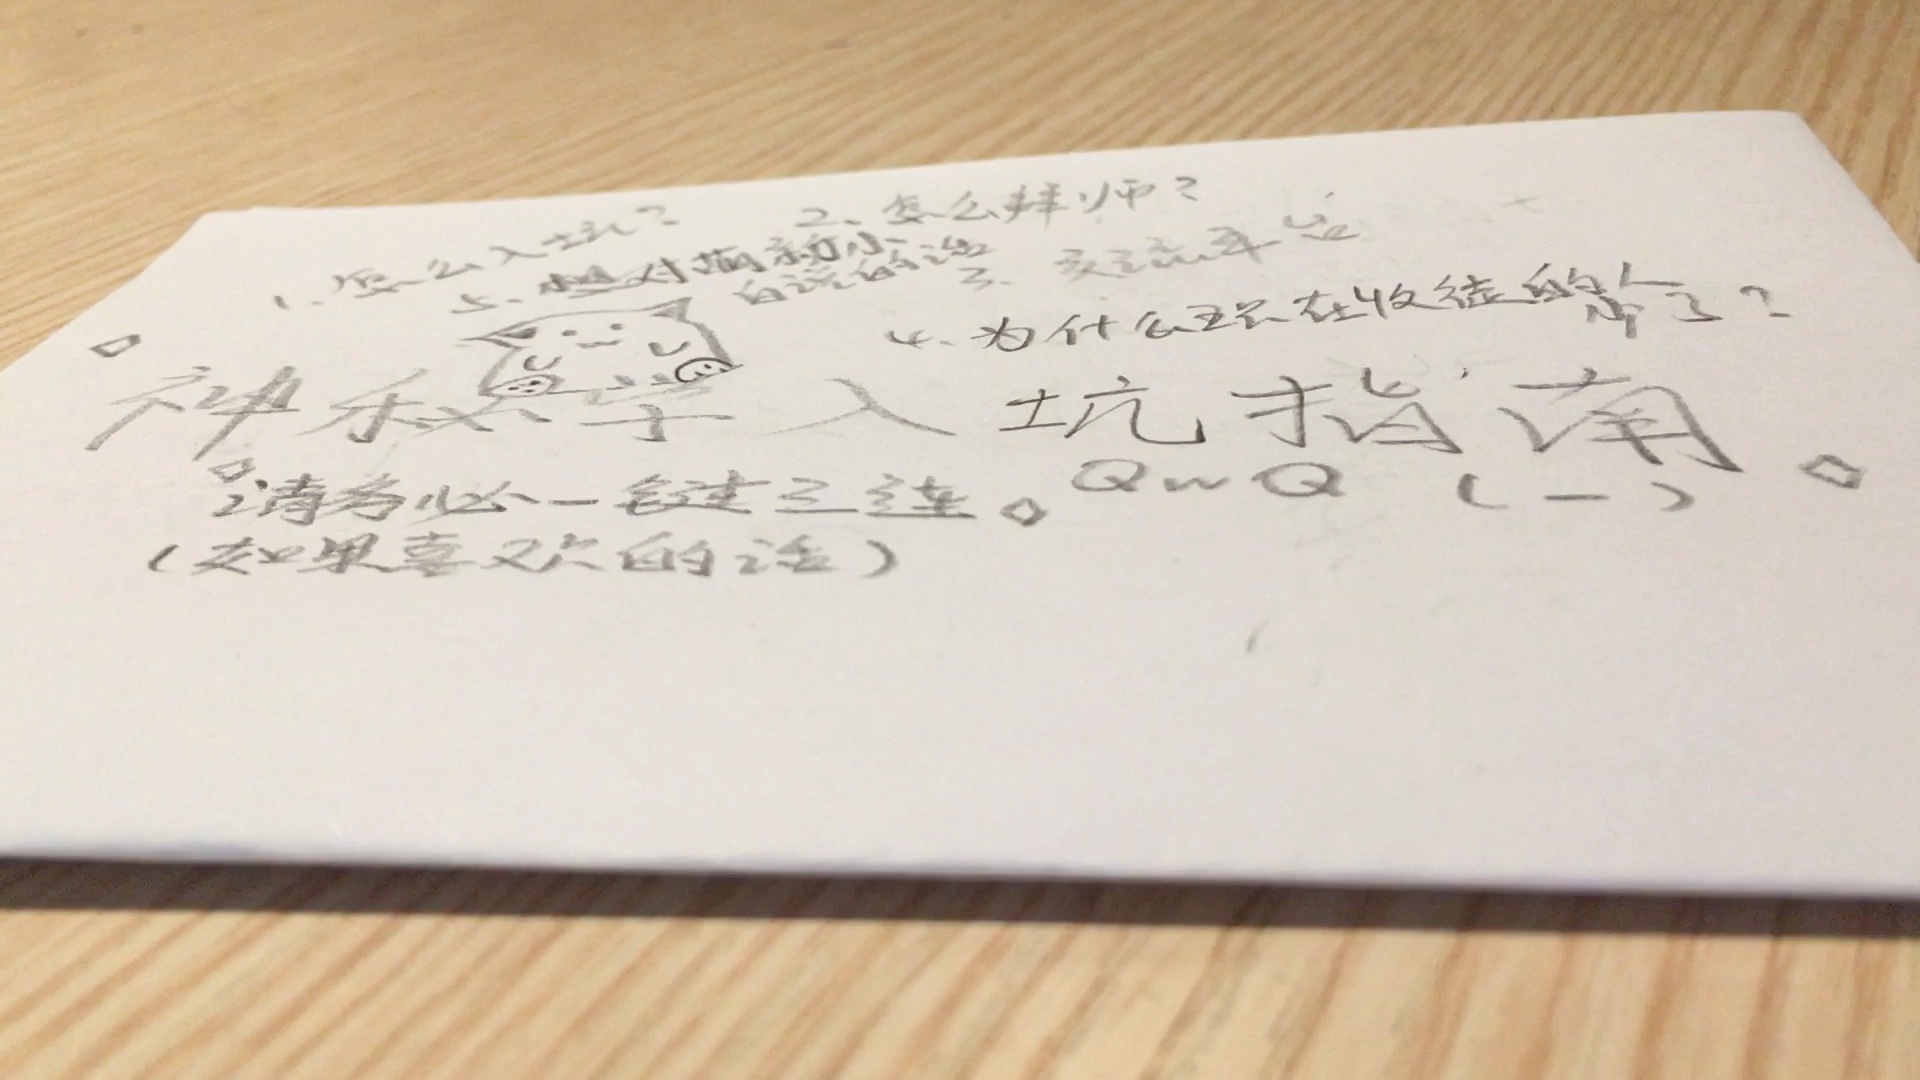 1、怎么入坑?
2、怎么拜师?
3、交流平台
4、为什么现在收徒的人少了?
5、想对萌新小白说的话
神秘学入坑指南
QwQ (一)
请务必一键三连
(如果喜欢的话)